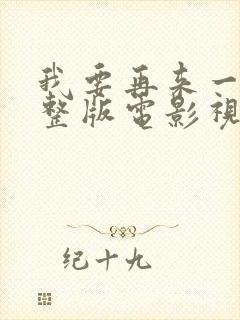 我要再来一
整版电影视
纪十九